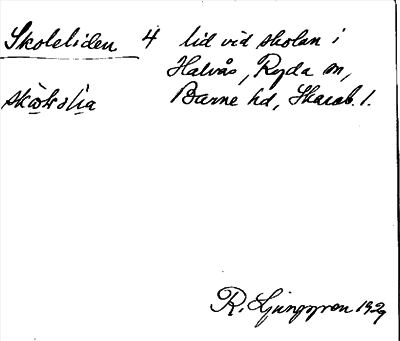 Skoleliden 4 lid vid skolan i
Halvås, Ryda sn,
skåkslia Barne hd, Skarab. l.
R. Ljunggren 1929